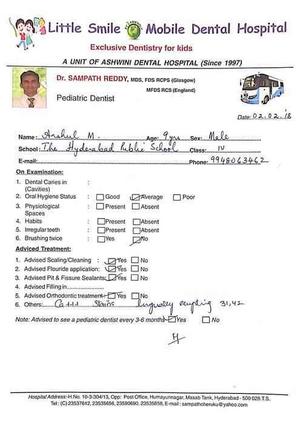 Little Smile Mobile Dental Hospital
Exclusive Dentistry for kids
A UNIT OF ASHWINI DENTAL HOSPITAL (Since 1997)
Dr. SAMPATH REDDY, MDS, FDS RCPS (Glasgow)
MFDS RCS (England)
Pediatric Dentist
Date: 02.02.'18
Name: M. Age: 9yrs Sex: Male
School: The Hyderabad Public School Class: IV
E-mail: Phone: 9948063462
On Examination:
1. Dental Caries in :
(Cavities)
2. Oral Hygiene Status : Good Average Poor
3. Physiological : Present Absent
Spaces
4. Habits : Present Absent
5. Irregular teeth : Present Absent
6. Brushing twice : Yes No
Adviced Treatment:
1. Advised Scaling/Cleaning : Yes No
2. Advised Flouride application: Yes No
3. Advised Pit & Fissure Sealants: Yes No
4. Advised Filling in
5. Advised Orthodontic treatment- Yes No
6. Others: Stains lingually 31,42
Note: Advised to see a pediatric dentist every 3-6 months- Yes No
Hospital Address-H.No. 10-3-304/13, Opp: Post Office, Humayunnagar, Masab Tank, Hyderabad - 500 028 T.S.
Tel: (C) 23537642, 23535656, 23590690, 23535856, E-mail : sampathcheruku@yahoo.com